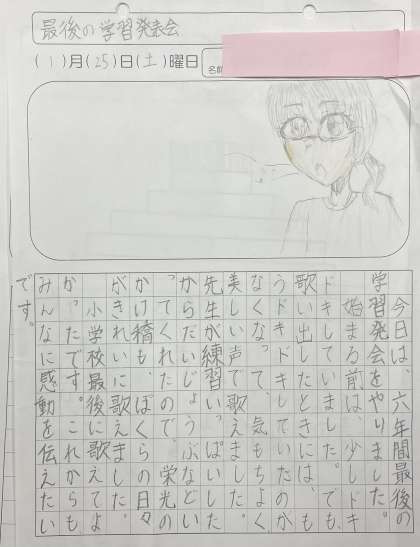 最後の学習発表会
(1)月(25)日(土)曜日
名前
今日は、六年間最後の
学習発会をやりました。
始まる前は、少しドキ
ドキしていました。でも
歌い出したときには、も
うドキドキしたのが
なくなって、気もちよく
美しい声で歌えました。
先生が練習いっぱいした
からだいじょうぶなどい
ってくれたので、栄光の
かけ橋も、ぼくらの日々
がきれいに、歌えました。
小学校最後に歌えてよ
かったです。これからも
みんなに感動を伝えたい
です。